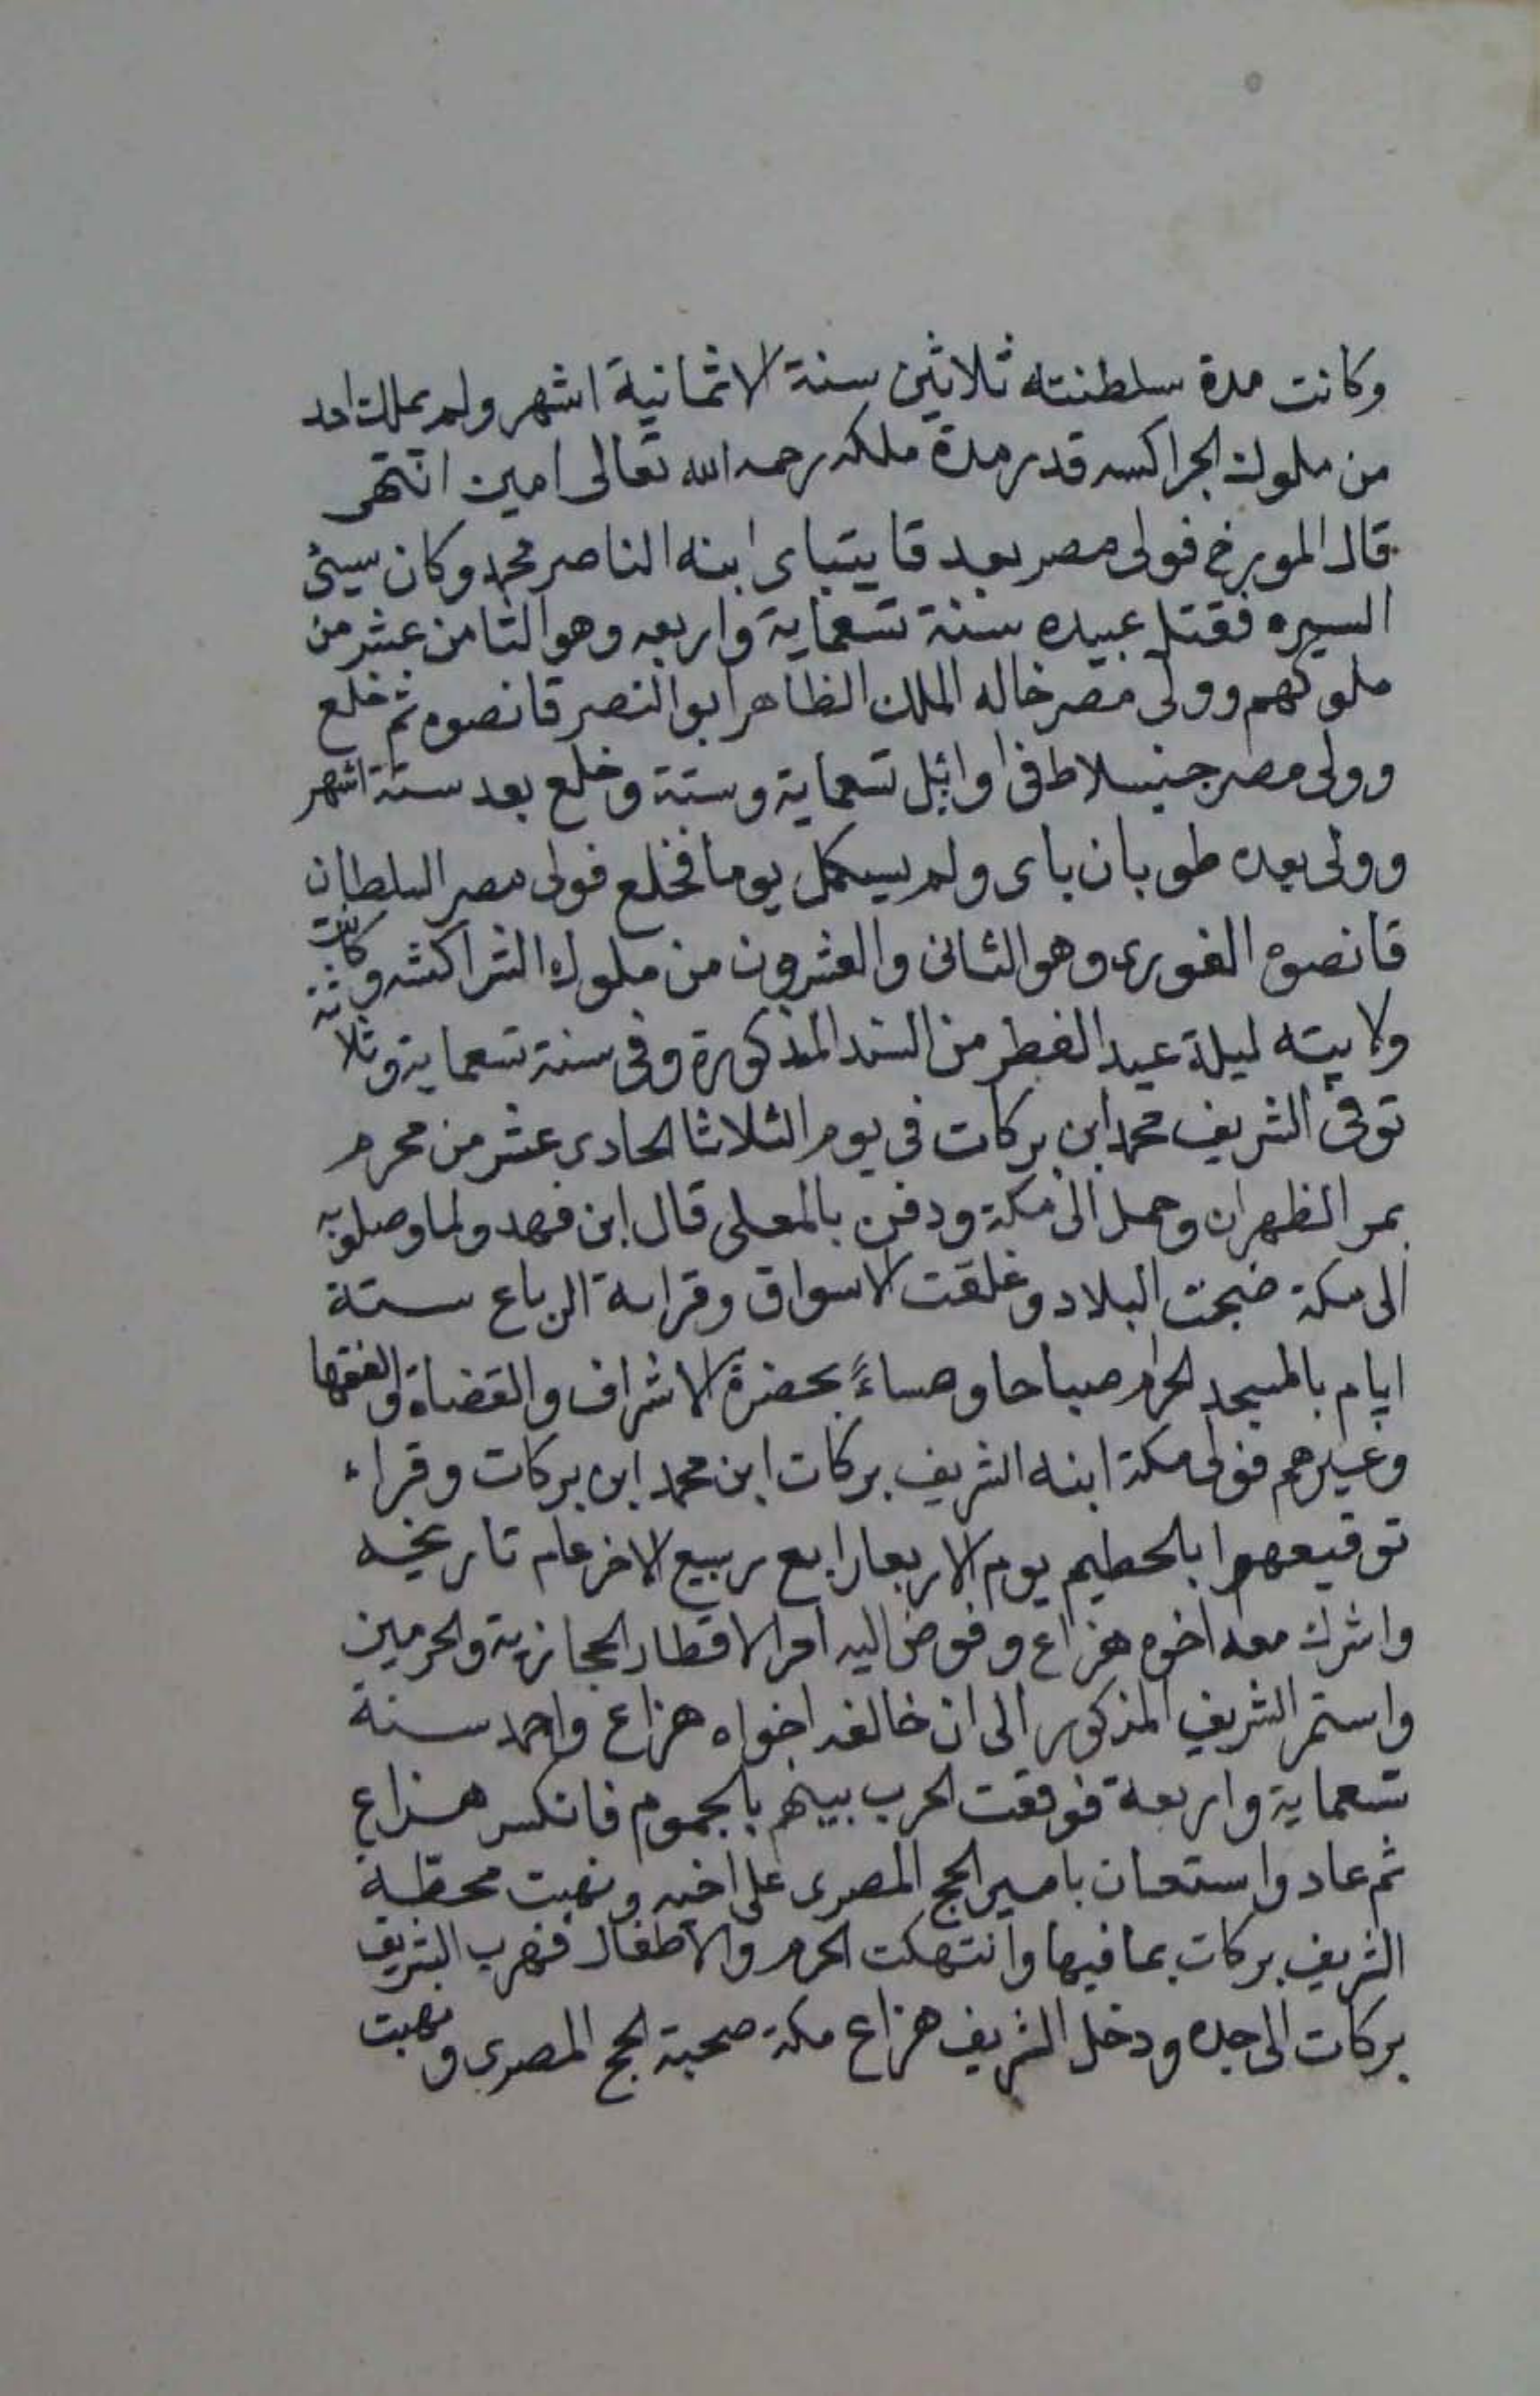 وكانت مدة سلطنته ثلاثين سنة الا ثمانية اشهر ولم يملك احد
من ملوك الجراكسه قدر مدة ملكه رحمه الله تعالى امين انتهى
قال المورخ فولى مصر بعد قايتباى ابنه الناصر محمد وكان سيئ
السيره فقتل عبيده سنة تسعماية واربعه وهو الثامن عشر من
ملوكهم وولى مصر خاله الملك الظاهر ابو النصر قانصوه ثم خلع
وولى مصر جنبلاط فى اوائل تسعماية وستة وخلع بعد ستة اشهر
وولى بعده طوبان باى ولم يستكمل يوما فخلع فولى مصر السلطان
قانصوه الغورى وهو الثانى والعشرون من ملوك الشراكشه وكانت
ولايته ليلة عيد الفطر من السنه المذكورة وفى سنة تسعماية وثلاثه
توفى الشريف محمد ابن بركات فى يوم الثلاثا الحادى عشر من محرم
بمر الظهران وحمل الى مكة ودفن بالمعلى قال ابن فهد ولما وصلو به
الى مكة ضجت البلاد وغلقت الاسواق وقراة الرباع ستة
ايام بالمسجد الحرام صباحا ومساءً بحضرة الاشراف والقضاة والفقها
وغيرهم فولى مكة ابنه الشريف بركات ابن محمد ابن بركات وقراء
توقيعهم بالحطيم يوم الاربعا رابع ربيع الاخر عام تاريخه
واشرك معه اخوه هزاع وفوض اليه امر الاقطار الحجازية والحرمين
واستمر الشريف المذكور الى ان خالفه اخواه هزاع واحمد سنة
تسعماية واربعة فوقعت الحرب بينهم بالجموم فانكسر هزاع
ثم عاد واستعان بامير الحج المصرى على اخيه ونهبت محطة
الشريف بركات بما فيها وانتهكت الحرم والاطفال فهرب الشريف
بركات الى جده ودخل الشريف هزاع مكة صحبة الحج المصرى ونهبت